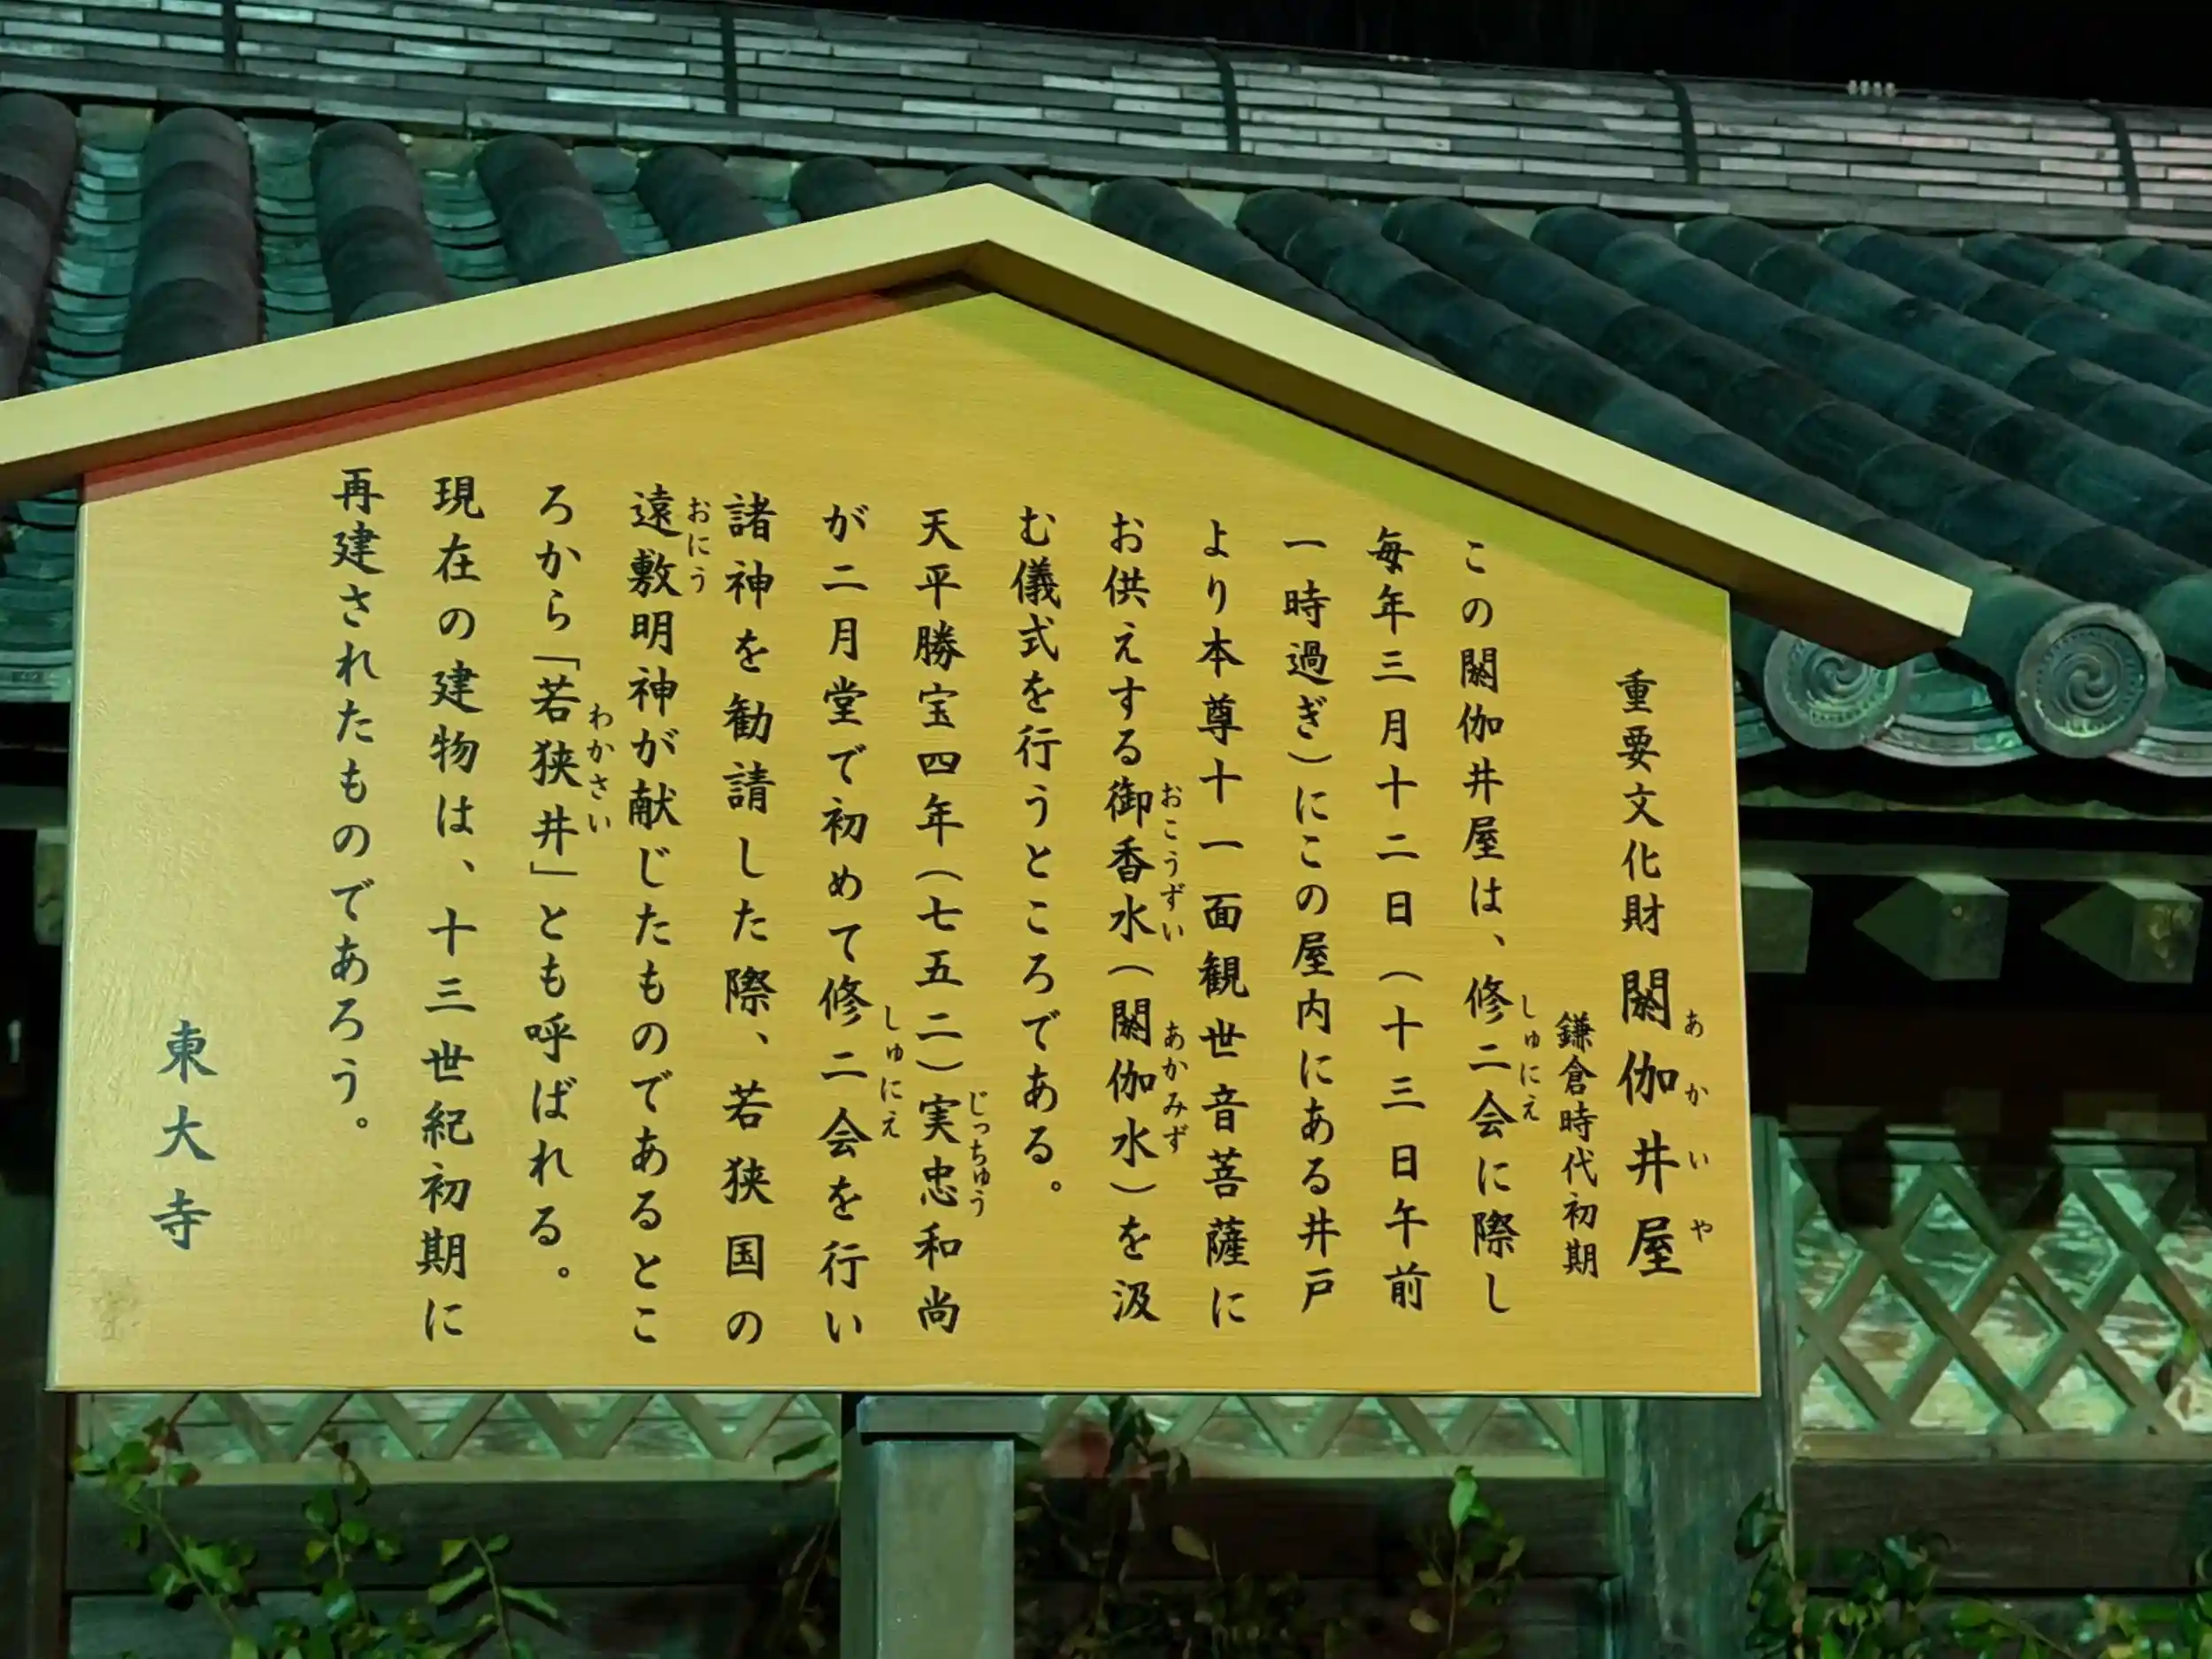 重要文化財 閼伽井屋
あかいや
鎌倉時代初期
この閼伽井屋は、修二会に際し
しゅにえ
毎年三月十二日（十三日午前
一時過ぎ）にこの屋内にある井戸
より本尊十一面観世音菩薩に
お供えする御香水（閼伽水）を汲
おこうずい
あかみず
む儀式を行うところである。
天平勝宝四年（七五二）実忠和尚
じっちゅう
が二月堂で初めて修二会を行い
しゅにえ
諸神を勧請した際、若狭国の
遠敷明神が献じたものであるとこ
おにう
ろから「若狭井」とも呼ばれる。
わかさい
現在の建物は、十三世紀初期に
再建されたものであろう。
東大寺